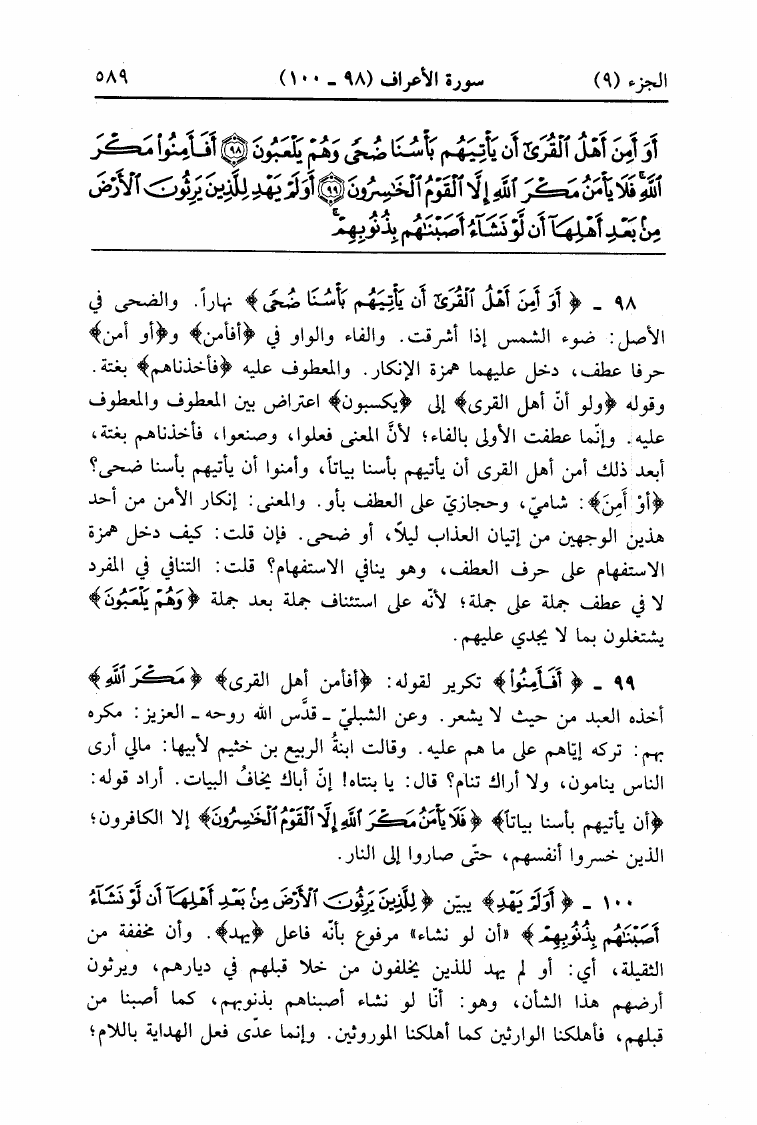 الجزء (٩) سورة الأعراف (٩٨ ـ ١٠٠) ٥٨٩
أَوَ أَمِنَ أَهْلُ ٱلْقُرَىٰٓ أَن يَأْتِيَهُم بَأْسُنَا ضُحًى وَهُمْ يَلْعَبُونَ ﴿٩٨﴾ أَفَأَمِنُوا۟ مَكْرَ
ٱللَّهِ ۚ فَلَا يَأْمَنُ مَكْرَ ٱللَّهِ إِلَّا ٱلْقَوْمُ ٱلْخَٰسِرُونَ ﴿٩٩﴾ أَوَلَمْ يَهْدِ لِلَّذِينَ يَرِثُونَ ٱلْأَرْضَ
مِنۢ بَعْدِ أَهْلِهَآ أَن لَّوْ نَشَآءُ أَصَبْنَٰهُم بِذُنُوبِهِمْ ۚ
٩٨ ـ ﴿أَوَ أَمِنَ أَهْلُ ٱلْقُرَىٰٓ أَن يَأْتِيَهُم بَأْسُنَا ضُحًى﴾ نهاراً. والضحى في
الأصل: ضوء الشمس إذا أشرقت. والفاء والواو في ﴿أفأمن﴾ و﴿أو أمن﴾
حرفا عطف، دخل عليهما همزة الإنكار. والمعطوف عليه ﴿فأخذناهم﴾ بغتة.
وقوله ﴿ولو أنّ أهل القرى﴾ إلى ﴿يكسبون﴾ اعتراض بين المعطوف والمعطوف
عليه. وإنّما عطفت الأولى بالفاء؛ لأنَّ المعنى فعلوا، وصنعوا، فأخذناهم بغتة،
أبعد ذلك أمن أهل القرى أن يأتيهم بأسنا بياتاً، وأمنوا أن يأتيهم بأسنا ضحى؟
﴿أوْ أَمِنَ﴾: شاميّ، وحجازيّ على العطف بأو. والمعنى: إنكار الأمن من أحد
هذين الوجهين من إتيان العذاب ليلاً، أو ضحى. فإن قلت: كيف دخل همزة
الاستفهام على حرف العطف، وهو ينافي الاستفهام؟ قلت: التنافي في المفرد
لا في عطف جملة على جملة؛ لأنّه على استئناف جملة بعد جملة ﴿وَهُمْ يَلْعَبُونَ﴾
يشتغلون بما لا يجدي عليهم.
٩٩ ـ ﴿أَفَأَمِنُوا۟﴾ تكرير لقوله: ﴿أفأمن أهل القرى﴾ ﴿مَكْرَ ٱللَّهِ﴾
أخذه العبد من حيث لا يشعر. وعن الشبليّ ـ قدَّس الله روحه ـ العزيز: مكره
بهم: تركه إيّاهم على ما هم عليه. وقالت ابنةُ الربيع بن خثيم لأبيها: مالي أرى
الناس ينامون، ولا أراك تنام؟ قال: يا بنتاه! إنّ أباك يخافُ البيات. أراد قوله:
﴿أن يأتيهم بأسنا بياتاً﴾ ﴿فَلَا يَأْمَنُ مَكْرَ ٱللَّهِ إِلَّا ٱلْقَوْمُ ٱلْخَٰسِرُونَ﴾ إلا الكافرون؛
الذين خسروا أنفسهم، حتّى صاروا إلى النار.
١٠٠ ـ ﴿أَوَلَمْ يَهْدِ﴾ يبيّن ﴿لِلَّذِينَ يَرِثُونَ ٱلْأَرْضَ مِنۢ بَعْدِ أَهْلِهَآ أَن لَّوْ نَشَآءُ
أَصَبْنَٰهُم بِذُنُوبِهِمْ﴾ «أن لو نشاء» مرفوع بأنّه فاعل ﴿يهد﴾. وأن مخففة من
الثقيلة، أي: أو لم يهد للذين يخلفون من خلا قبلهم في ديارهم، ويرثون
أرضهم هذا الشأن، وهو: أنّا لو نشاء أصبناهم بذنوبهم، كما أصبنا من
قبلهم، فأهلكنا الوارثين كما أهلكنا الموروثين. وإنما عدّى فعل الهداية باللام؛